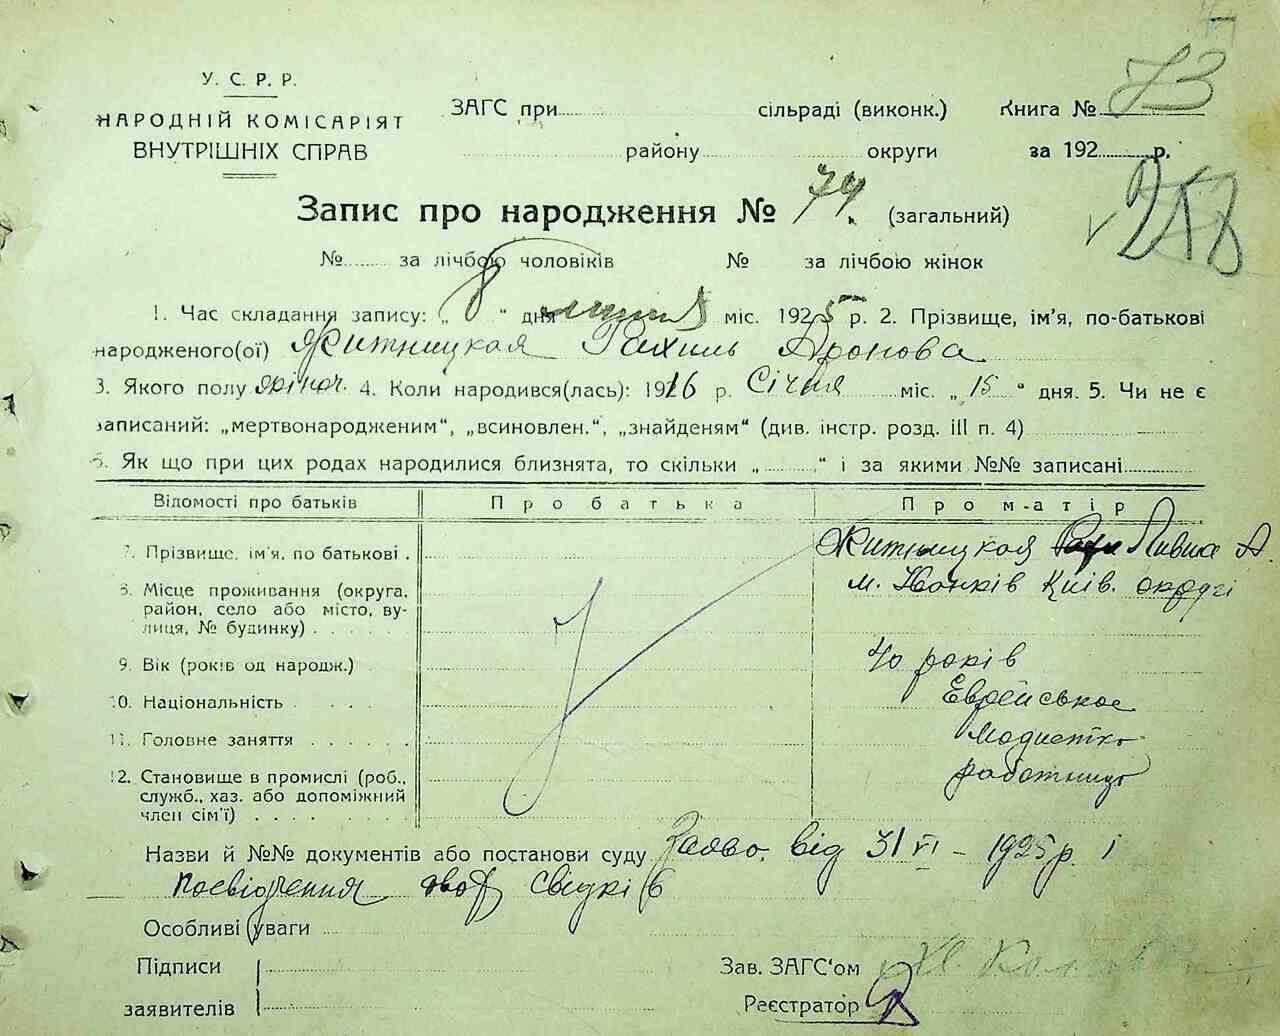 У. С. Р. Р.
НАРОДНІЙ КОМІСАРІЯТ
ВНУТРІШНІХ СПРАВ
ЗАГС при сільраді (виконк.) Книга № 73
району округи за 192 р.
258
Запис про народження № 74. (загальний)
№ за лічбою чоловіків № за лічбою жінок
1. Час складання запису: „ 8 “ дня липня міс. 1925 р. 2. Прізвище, ім’я, по-батькові
народженого(ої) Житницкая Рахиль Аронова
3. Якого полу жіноч. 4. Коли народився(лась): 1916 р. Січня міс. „ 15 “ дня. 5. Чи не є
записаний: „мертвонародженим“, „всиновлен.“, „знайденям“ (див. інстр. розд. III п. 4)
6. Як що при цих родах народилися близнята, то скільки „ “ і за якими №№ записані
Відомості про батьків Про батька Про матір
7. Прізвище, ім’я, по батькові . Житницкая Ливша А.
8. Місце проживання (округа, м. Київ. округі
район, село або місто, ву-
лиця, № будинку)
9. Вік (років од народж.) 40 років
10. Національність Еврейськое
11. Головне заняття Модистка
12. Становище в промислі (роб., работниця
служб., хаз. або допоміжний
член сім’ї)
Назви й №№ документів або постанови суду Заяво. від 31 VI – 1925 р. і
посвідчення двох свідків
Особливі уваги
Підписи Зав. ЗАГС‘ом
заявителів Реєстратор